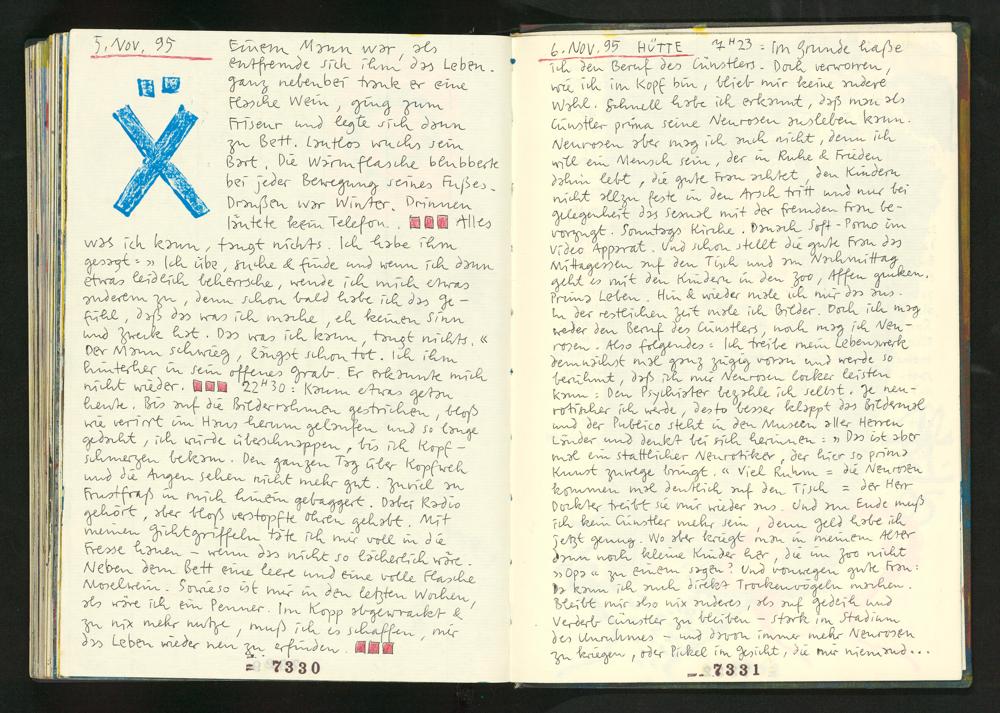 5. Nov. 95
Einem Mann war, als
entfremde sich ihm das Leben.
ganz nebenbei trank er eine
Flasche Wein, ging zum
Friseur und legte sich dann
zu Bett. Lautlos wuchs sein
Bart. Die Wärmflasche blubberte
bei jeder Bewegung seines Fußes.
Draußen war Winter. Drinnen
läutete kein Telefon. Alles
was ich kann, taugt nichts. Ich habe ihm
gesagt = » Ich übe, suche & finde und wenn ich dann
etwas leidlich beherrsche, wende ich mich etwas
anderem zu, denn schon bald habe ich das Ge-
fühl, daß das was ich mache, eh keinen Sinn
und Zweck hat. Das was ich kann, taugt nichts. «
Der Mann schwieg, längst schon tot. Ich ihm
hinterher in sein offenes Grab. Er erkannte mich
nicht wieder. 22H30 : Kaum etwas getan
heute. Bis auf die Bilderrahmen gestrichen, bloß
wie verirrt im Haus herum gelaufen und so lange
gedacht, ich würde überschnappen, bis ich Kopf-
schmerzen bekam. Den ganzen Tag über Kopfweh
und die Augen sehen nicht mehr gut. Zuviel an
Frustfraß in mich hinein gebaggert. Dabei Radio
gehört, aber bloß verstopfte Ohren gehabt. Mit
meinen Gichtgriffeln täte ich mir voll in die
Fresse hauen – wenn das nicht so lächerlich wäre.
Neben dem Bett eine leere und eine volle Flasche
Moselwein. Sowieso ist mir in den letzten Wochen,
als wäre ich ein Penner. Im Kopp abgewrackt &
zu nix mehr nutze, muß ich es schaffen, mir
das Leben wieder neu zu erfinden.
= 7330
6. Nov. 95 HÜTTE 7H23 = Im Grunde haße
ich den Beruf des Cünstlers. Doch verworren,
wie ich im Kopf bin, blieb mir keine andere
Wahl. Schnell habe ich erkannt, daß man als
Cünstler prima seine Neurosen ausleben kann.
Neurosen aber mag ich auch nicht, denn ich
will ein Mensch sein, der in Ruhe & Frieden
dahin lebt, die gute Frau achtet, den Kindern
nicht allzu feste in den Arsch tritt und nur bei
gelegenheit das Sexual mit der fremden Frau be-
vorzugt. Sonntags Kirche. Danach Soft-Porno im
Video Apparat. Und schon stellt die gute Frau das
Mittagessen auf den Tisch und am Nachmittag
geht es mit den Kindern in den Zoo, Affen gucken.
Prima Leben. Hin & wieder male ich mir das aus.
In der restlichen Zeit male ich Bilder. Doch ich mag
weder den Beruf des Cünstlers, noch mag ich Neu-
rosen. Also folgendes = Ich treibe mein Lebenswerk
demnächst mal ganz zügig voran und werde so
berühmt, daß ich mir Neurosen locker leisten
kann = Den Psychiater bezahle ich selbst. Je neu-
rotischer ich werde, desto besser klappt das Bildermal
und der Publico steht in den Museen aller Herren
Länder und denkt bei sich herinnen = » Das ist aber
mal ein stattlicher Neurotiker, der hier so prima
Kunst zuwege bringt. « Viel Ruhm = die Neurosen
kommen mal deutlich auf den Tisch = der Herr
Dockter treibt sie mir wieder aus. Und am Ende muß
ich kein Cünstler mehr sein, denn Geld habe ich
jetzt genung. Wo aber kriegt man in meinem Alter
dann noch kleine Kinder her, die im Zoo nicht
» Opa « zu einem sagen? Und vonwegen gute Frau:
Da kann ich auch direkt Trockenvögeln machen.
Bleibt mir also nix anderes, als auf Gedeih und
Verderb Cünstler zu bleiben – stark im Stadium
des Unruhmes – und davon immer mehr Neurosen
zu kriegen, oder Pickel im Gesicht, die mir niemand...
= 7331